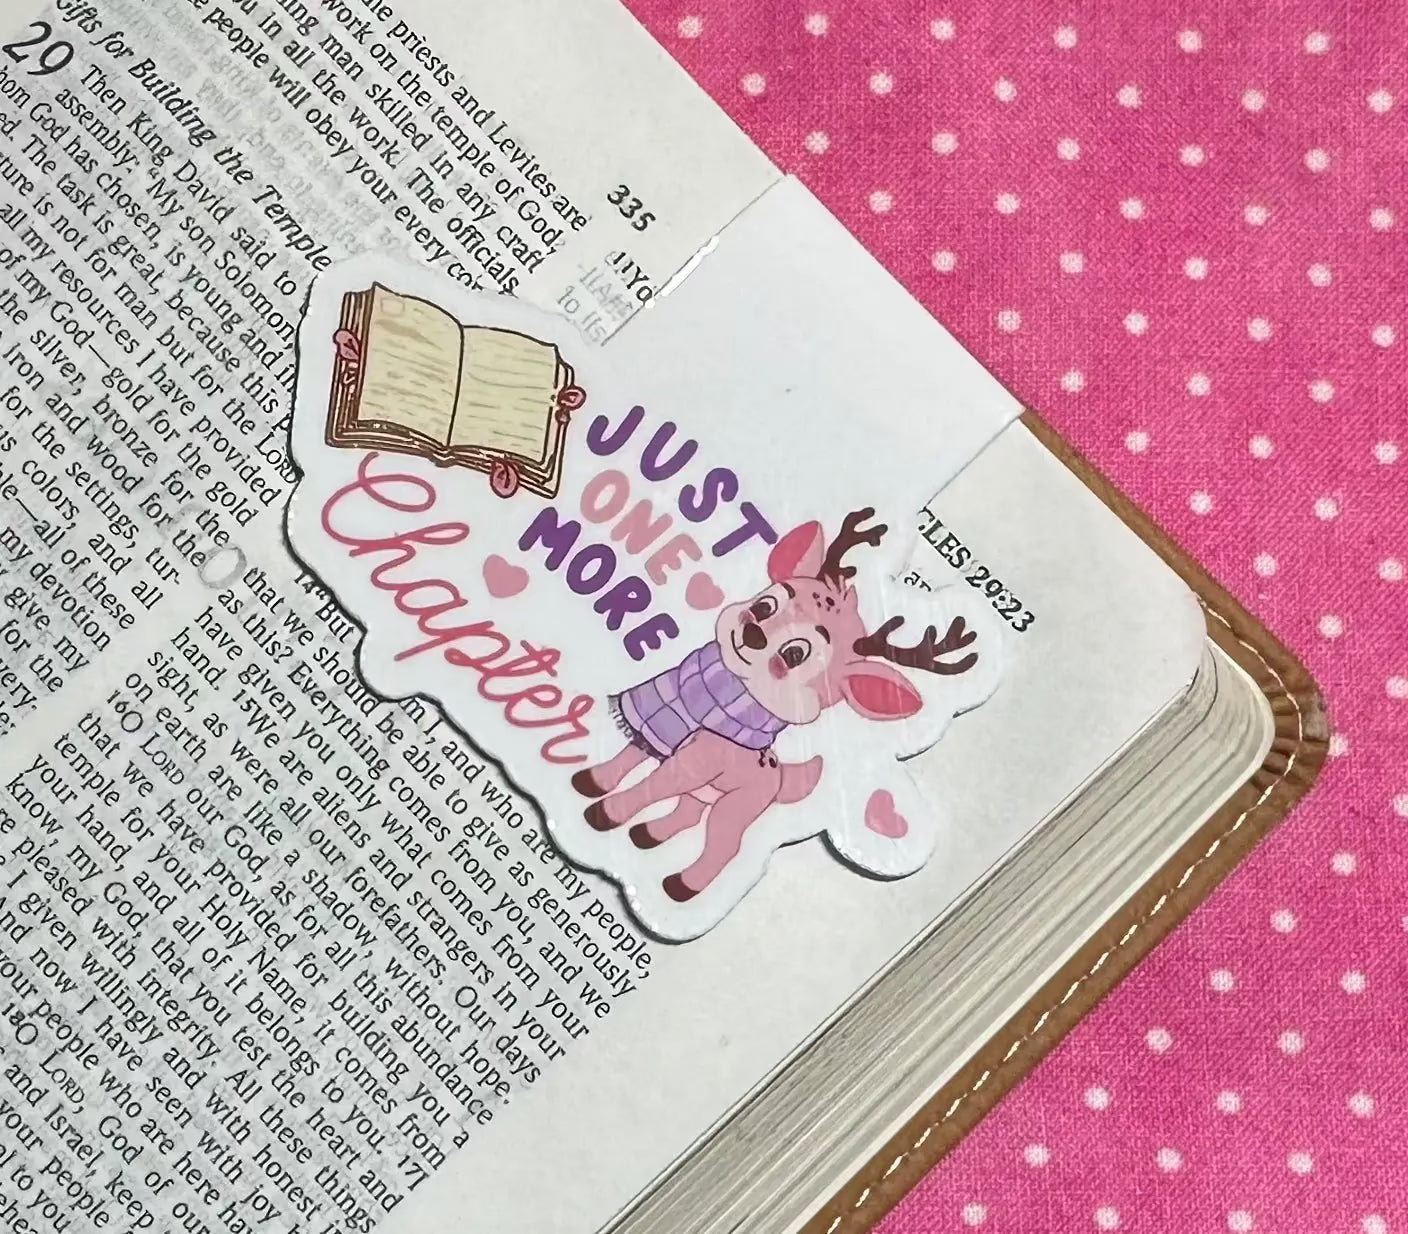 the priests and Levites are
work on the temple of God,
ing man skilled in any craft
u in all the work. The officials
e people will obey your every
Gifts for Building the Temple
29 Then King David said to
assembly: "My son Solomon,
hom God has chosen, is young and
ed. The task is great, because this
ture is not for man but for the LORD
all my resources I have provided
of my God—gold for the gold
the silver, bronze for the
iron and wood for the
for the settings, tur-
us colors, and all
ble—all of these
my devotion
give my
for the
very
335
CLES 29:23
JUST
ONE
MORE
Chapter
14"But
m I, and who are my people,
that we should be able to give as generously
as this? Everything comes from you, and we
have given you only what comes from your
hand. 15We are aliens and strangers in your
sight, as were all our forefathers. Our days
on earth are like a shadow, without hope.
16O LORD our God, as for all this abundance
that we have provided for building you a
temple for your Holy Name, it comes from
your hand, and all of it belongs to you. 17I
know, my God, that you test the heart and
re pleased with integrity. All these things
I given willingly and with honest
And now I have seen with joy
your people who are here
18O LORD, God of our
and Israel, keep
your people
to you